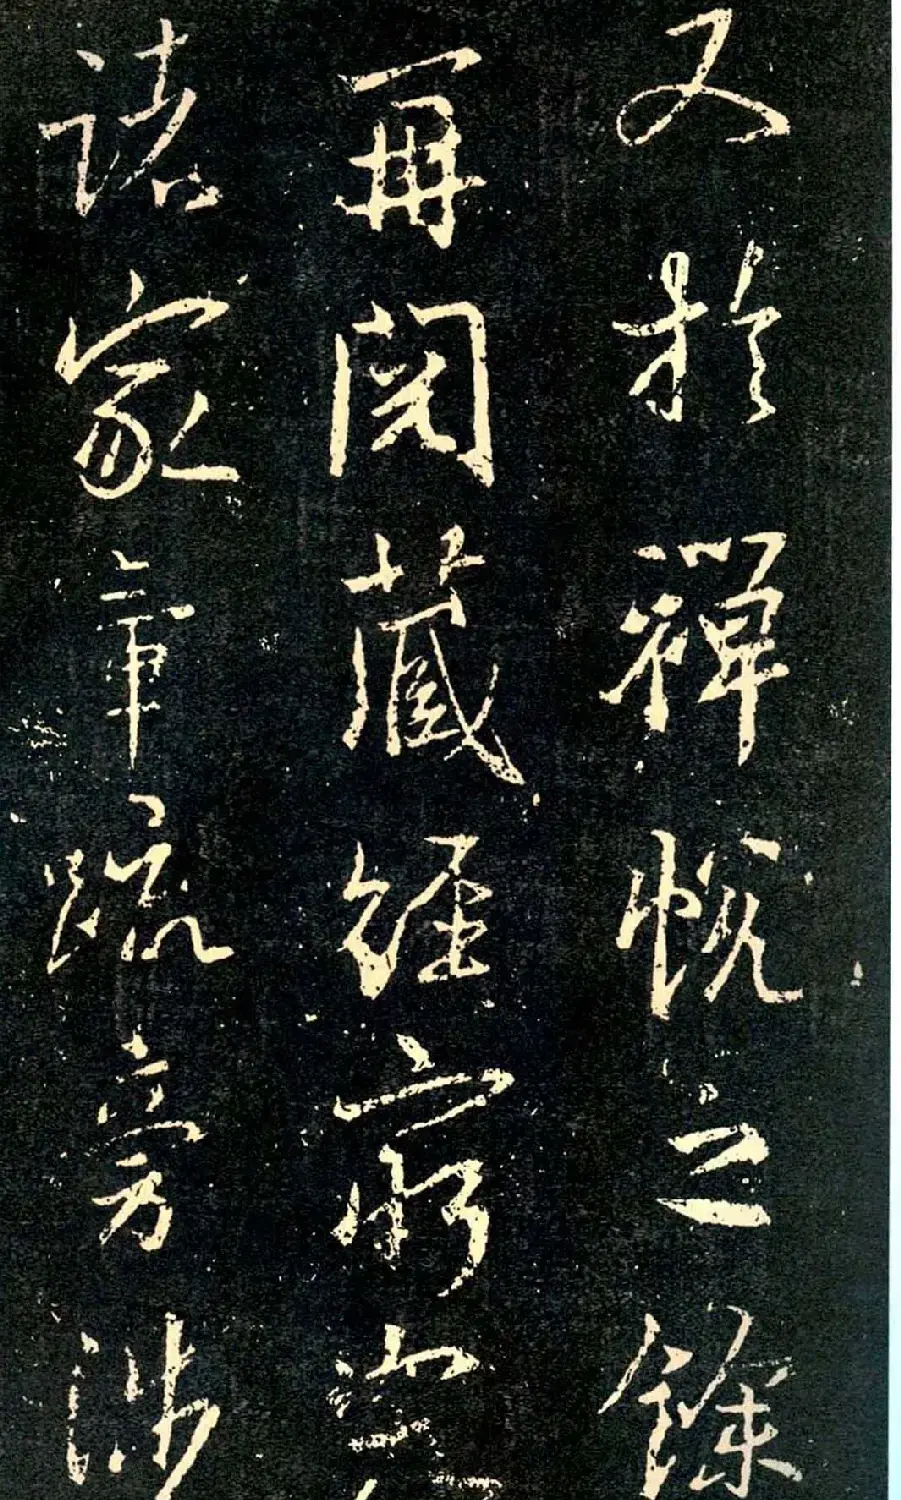 又於禪悅之餘
再閱藏經窮
諸家章疏旁涉